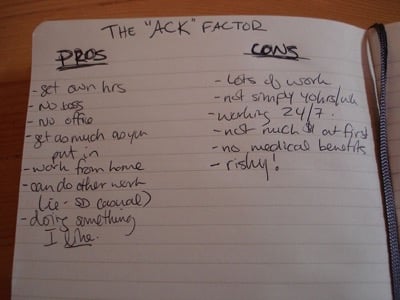 THE "ACK" FACTOR
PROS
- set own hrs
- no boss
- no office
- get as much as you
put in
- work from home
- can do other work
(ie - SD casual)
- doing something
I like.
CONS
- lots of work
- not simply 40hrs/wk
- working 24/7.
- not much $ at first
- no medical benefits
- risky!